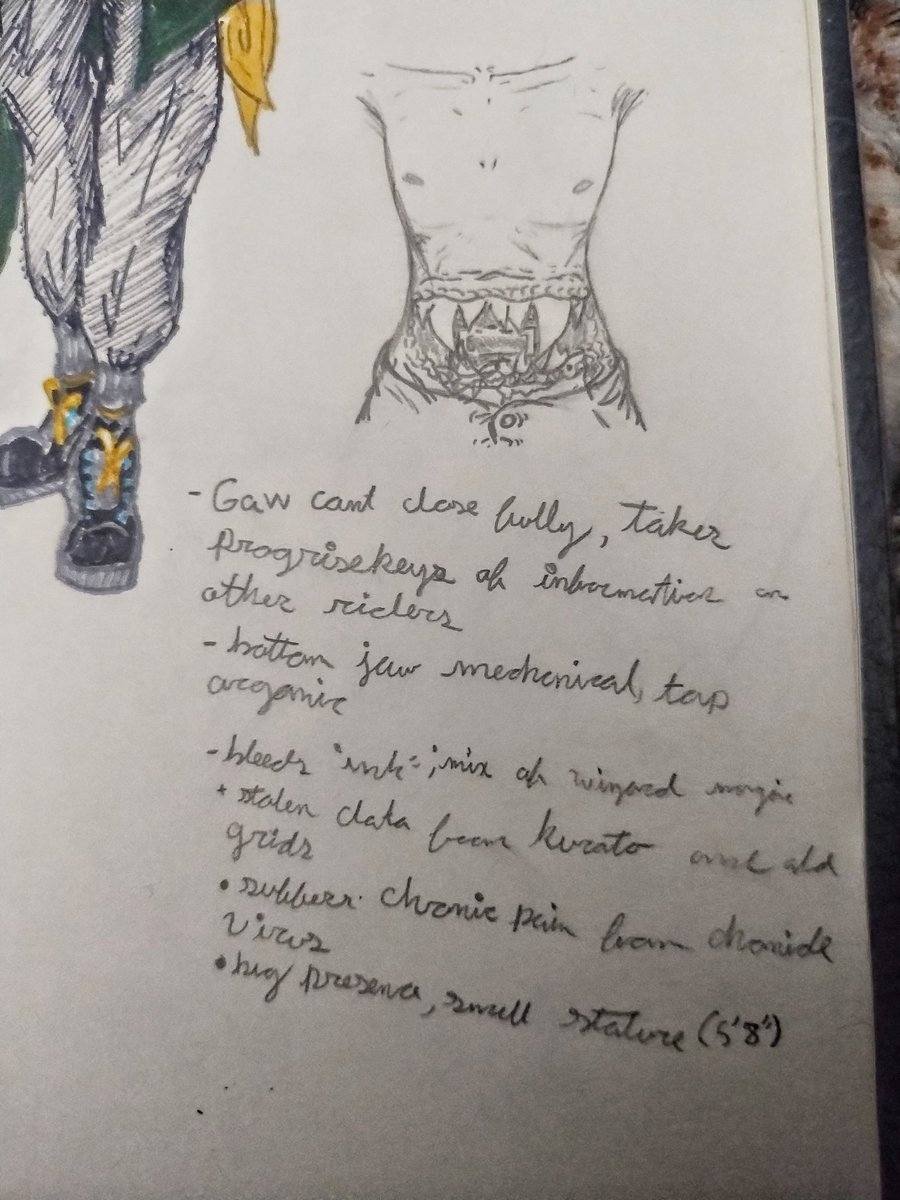 - Gaw cant close fully, takes
Progrisekeys of information on
other riders
- bottom jaw mechanical, top
organic
- bleeds "ink"; mix of wizard magic
+ stolen data from Kurato and old
grids
• suffers chronic pain from
virus
• big presence, small stature (5'8")